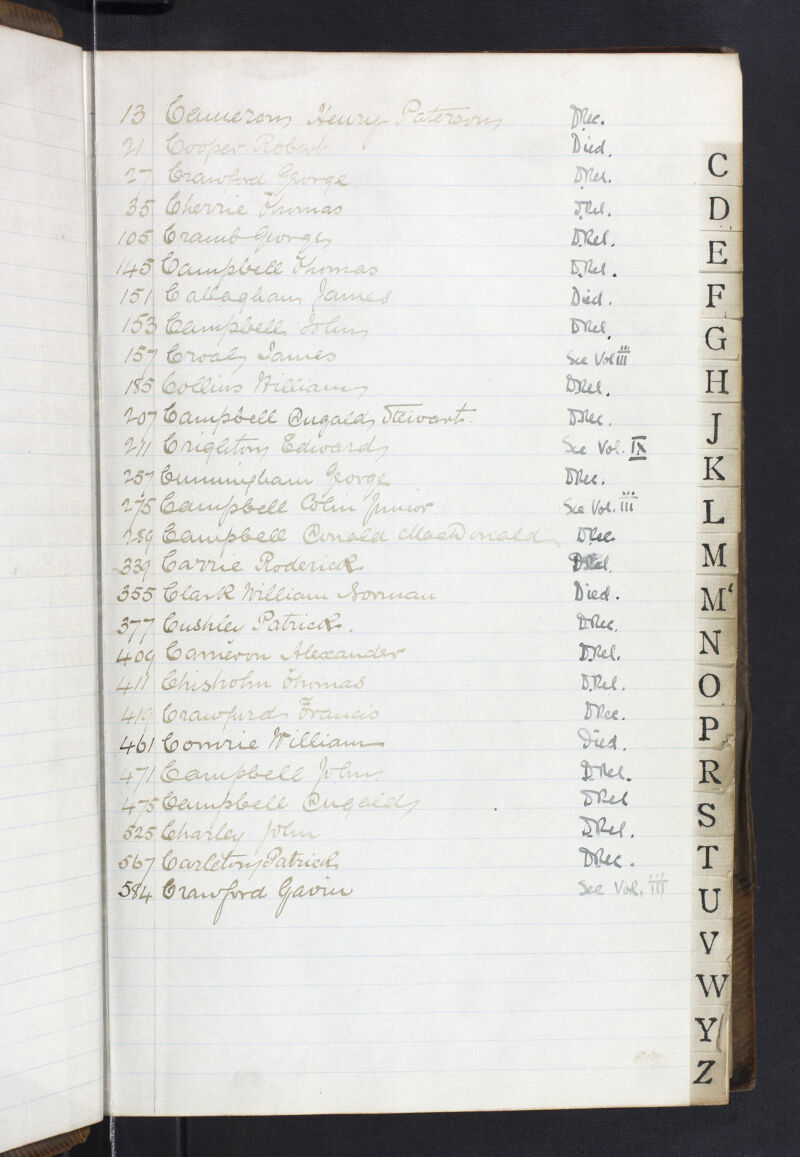 13 Cameron Henry Paterson DRec.
21 Cooper Robert Died.
27 Crawford George DRel.
35 Cherrie Thomas DRel.
105 Cramb George DRel.
145 Campbell Thomas DRel.
151 Callaghan James Died.
153 Campbell John DRel.
157 Croal James See Vol iii
185 Collins William DRel.
207 Campbell Dugald Stewart. DRec.
211 Crighton Edward See Vol. IX
257 Cunningham George DRec.
275 Campbell Colin Junior See Vol. iii
289 Campbell Donald MacDonald DRec
339 Carrie Roderick DRel.
355 Clark William Norman Died.
377 Cushley Patrick. DRec.
409 Cameron Alexander DRel.
411 Chisholm Thomas DRel.
419 Crawfurd Francis DRec.
461 Comrie William Died.
471 Campbell John DRel.
475 Campbell Dugald DRel
525 Charley John DRel.
567 Carleton Patrick DRec.
584 Crawford Gavin See Vol. iii
C
D
E
F
G
H
J
K
L
M
M'
N
O
P
R
S
T
U
V
W
Y
Z